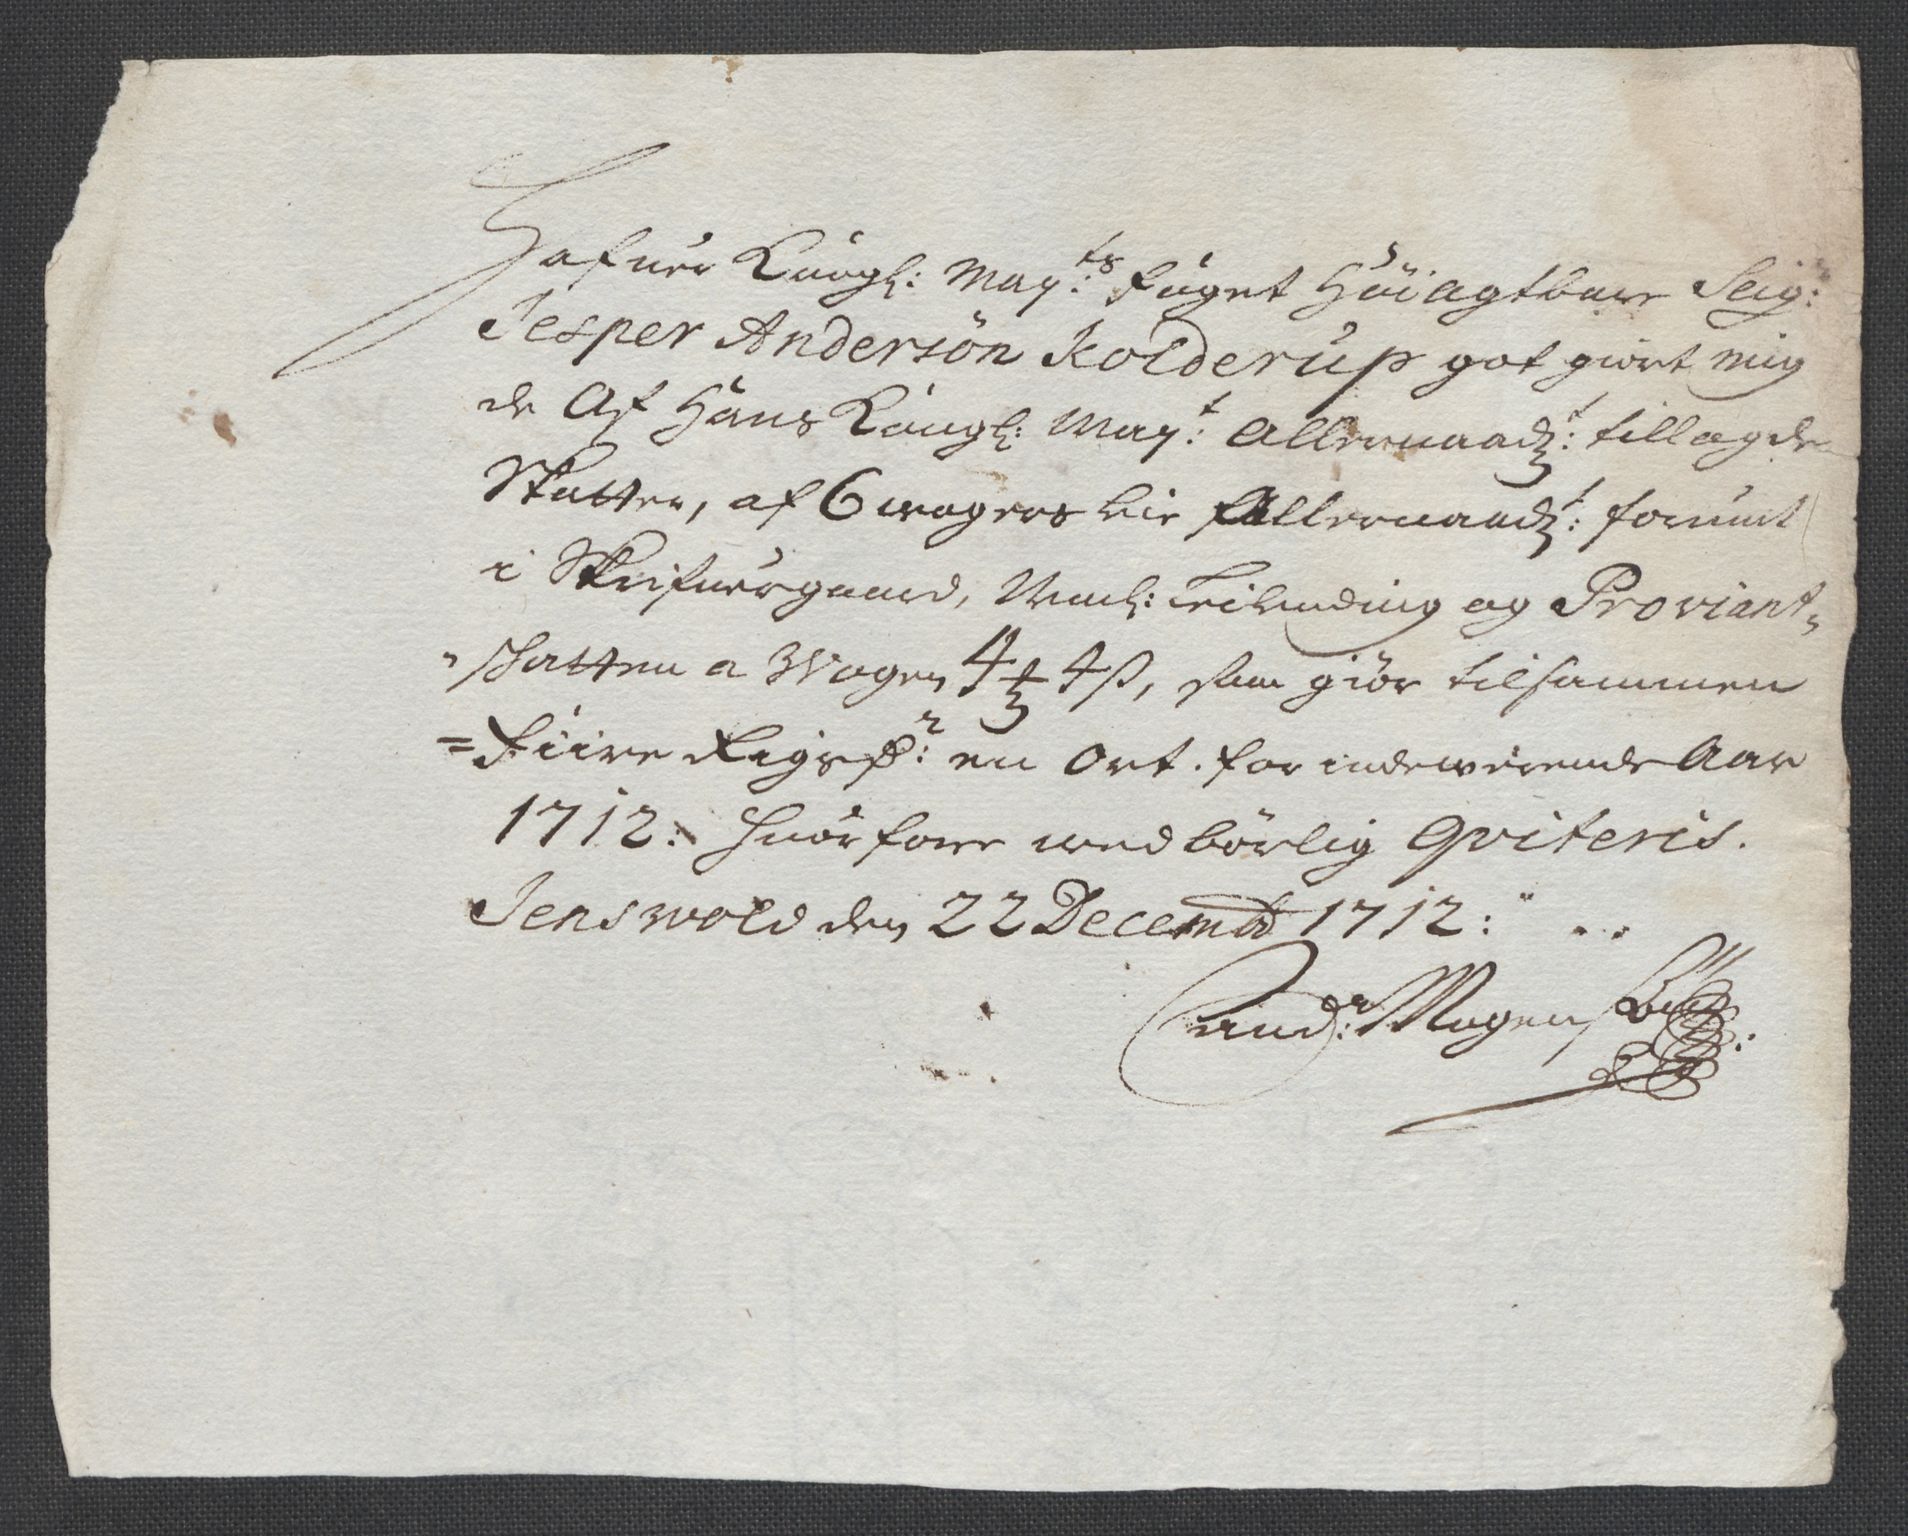 Hafuer Kongl: May:ts Foget Höiagtbare Seig:
Jesper Andersön Kolderup got giort mig
de Af Hans Kongl: May:t Allernaadg:t tillagde
Skatter, af 6 wogers leie Allernaadg:t forunt
i Skrifuergaard, Leilending og Proviant-
Skatten a Wogen 4 ß, som giör tilsammen
=Fiire Rigsdr: en Ort. for indewerende Aar
1712: Huorfore wed börlig Qviteris.
Jenswold den 22 Decembr 1712:
And:r Mogens